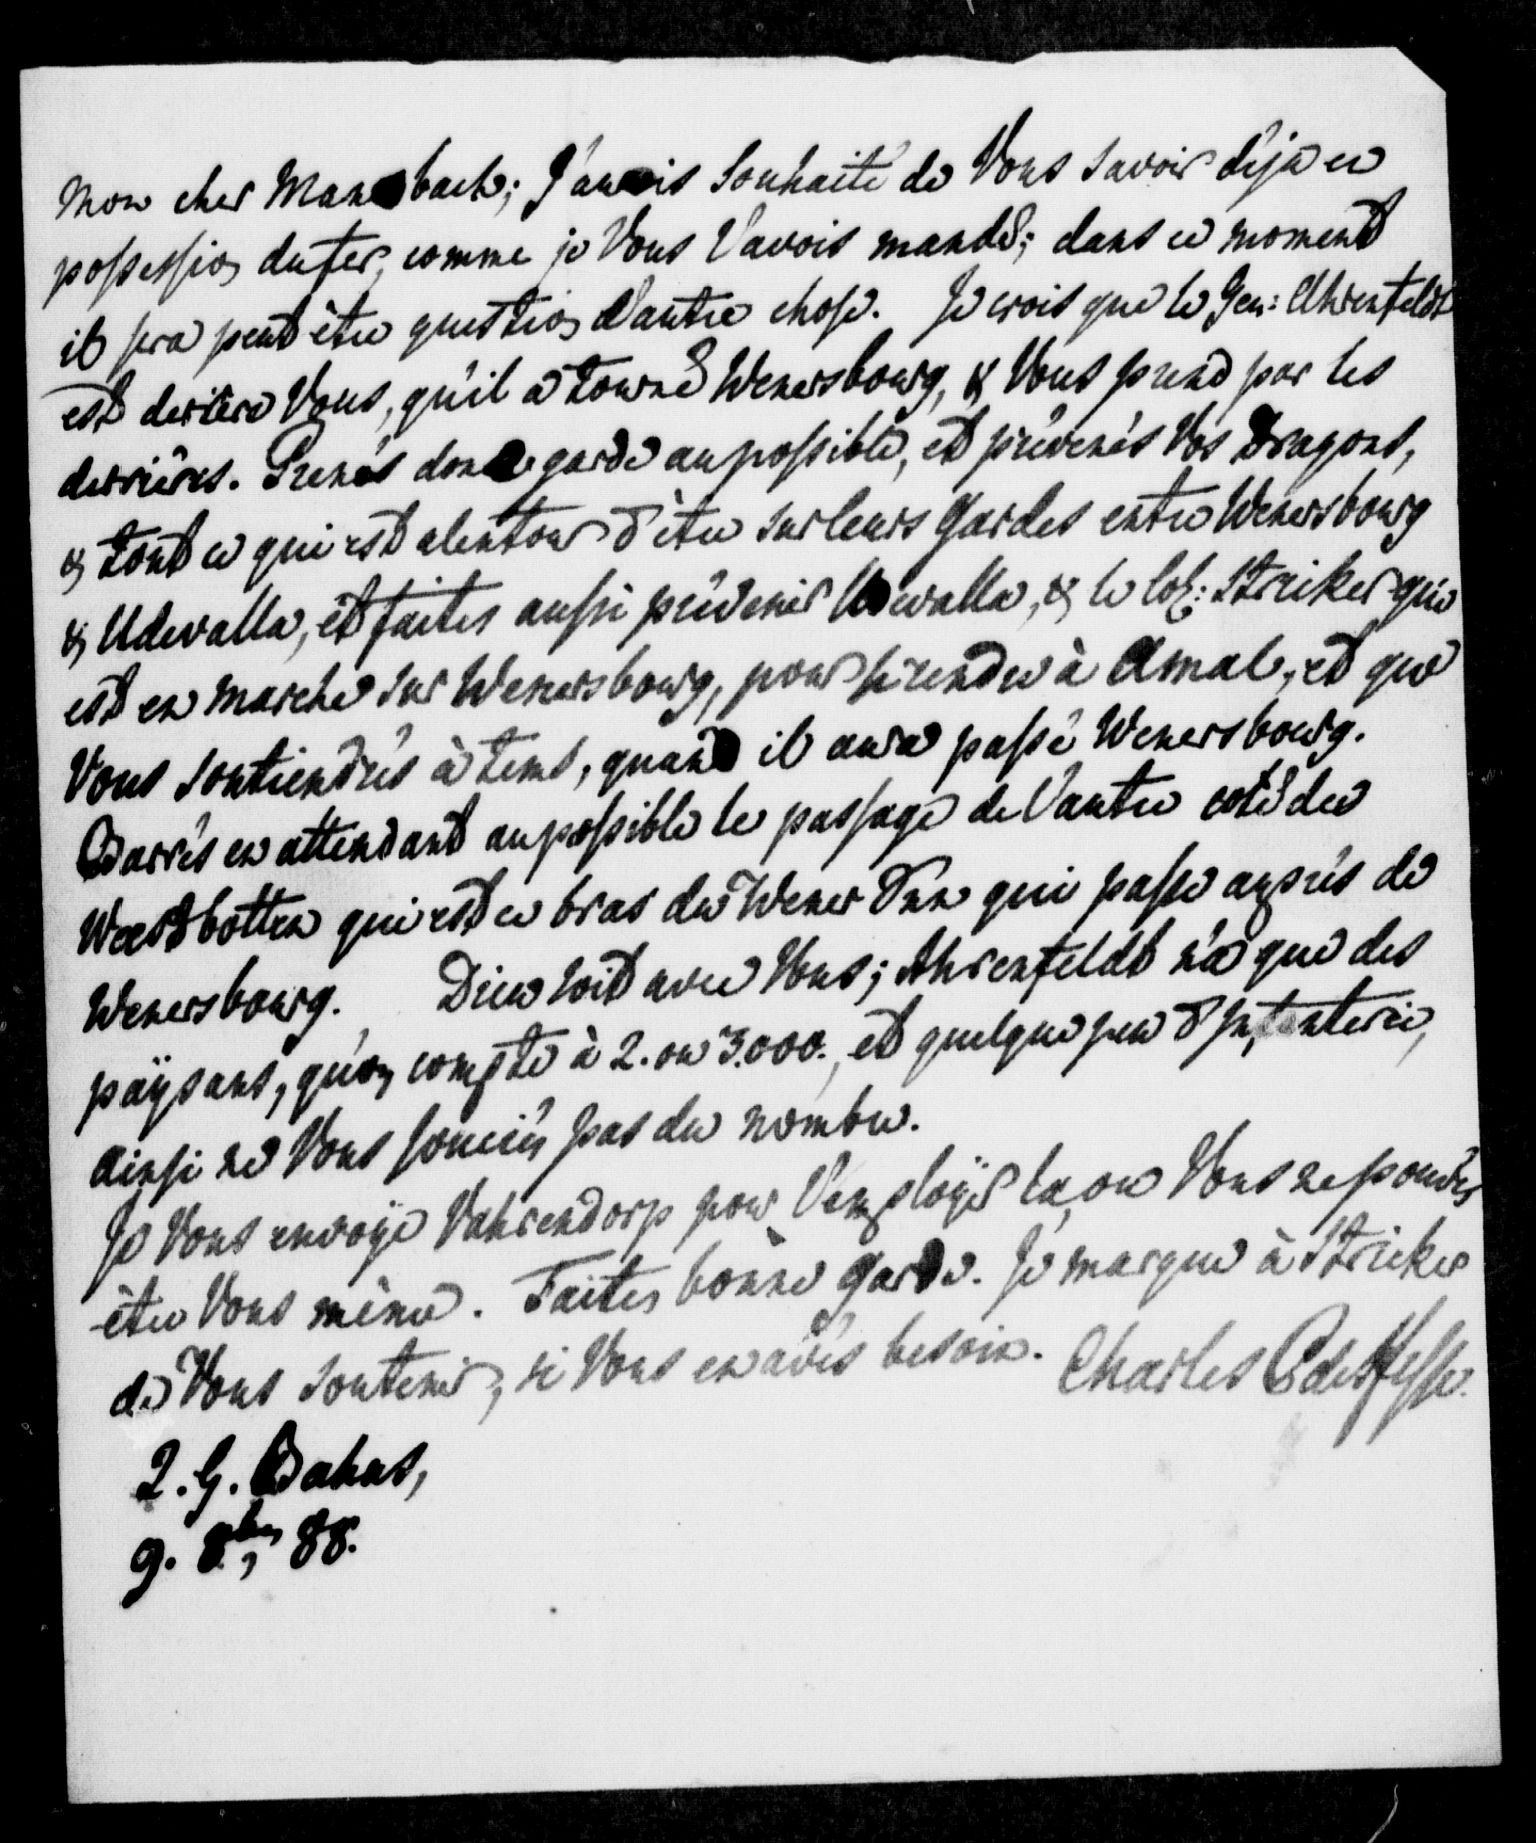 Mon cher Mansbach; J'aurois Souhaité de Vous savoir déja en
possession du fer, comme je Vous l'avois mandé; dans ce moment
il sera peut être question d'autre chose. Je crois que le Gen: Ahrenfeldt
est deriere Vous, qu'il a tourné Wenersbourg, & Vous prend par les
derrières. Prenés donc garde au possible, et prévenés Vos Dragons,
& tout ce qui est alentour d'être sur leurs Gardes entre Wenersbourg
& Udevalla, et faites aussi prévenir Udewalla, & le Col: Striker qui
est en marche sur Wenersbourg, pour se rendre à Amal, et que
Vous soutiendrés à tems, quand il aura passé Wenersbourg.
Barrés en attendant au possible le passage de l'autre coté du
Wæstbotten qui est ce bras du Wener Sun qui passe auprés de
Wenersbourg. Dieu soit avec Vous; Ahrenfeldt n'a que des
paÿsans, qu'on compte à 2. ou 3.000., et quelque peu d'Infanterie,
ainsi ne Vous souciés pas du nombre.
Je Vous envoÿe Vahrendorp pour l'emploÿer la, ou Vous ne pouvés
être Vous même. Faites bonne Garde. Je marque à Stricker
de Vous soutenir, si Vous en avés besoin. Charles P de Hesse.
Q. G. Bahus,
9. 8br, 88.